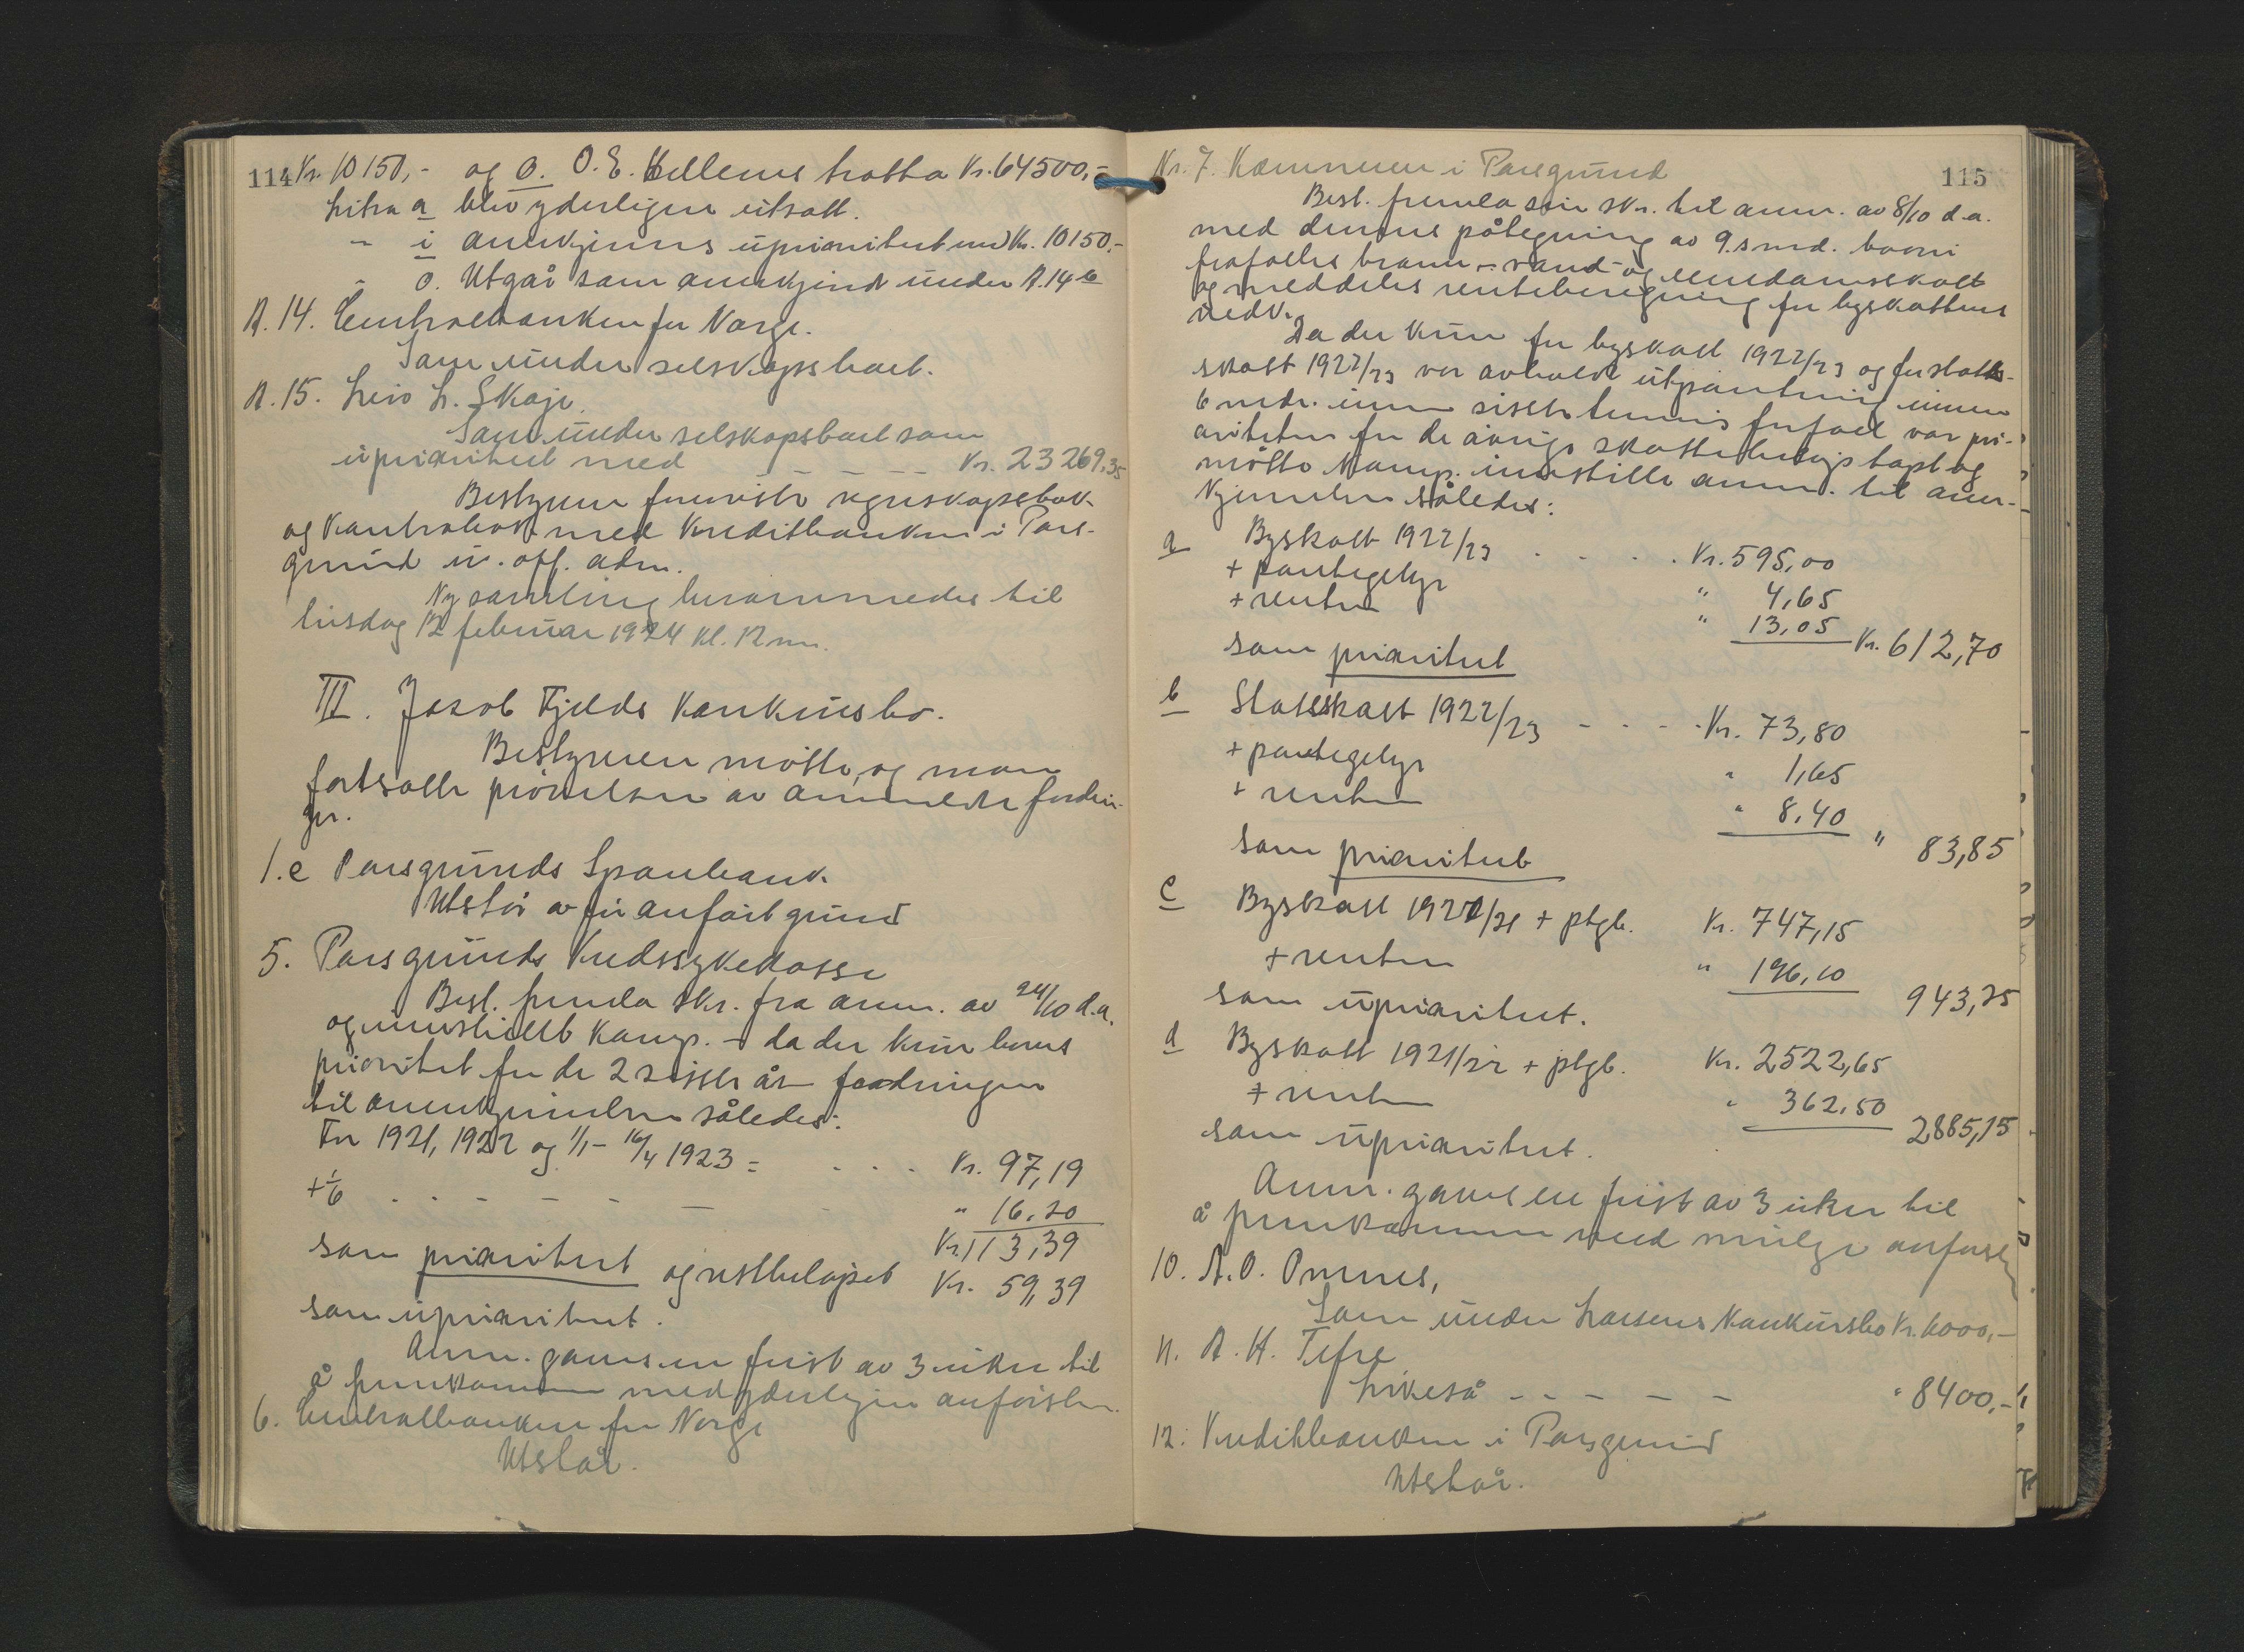 114 Kr. 10150,- og o. O. E. Kellems tratta Kr. 64500,-
Litra a blev yderligere utsatt.
- i anerkjennes uprioritert med Kr. 10150.-
- o. Utgår som anerkjendt under A.14 b
A. 14. Centralbanken for Norge.
Som under selskapsboet.
A. 15. Leiv L. Skaje.
Som under selskapsboet som
uprioritert med - - - - - Kr. 23269,35
Bestyreren foreviste regnskapsbok
og Kontrabok med Kreditbanken i Pors-
grund u. off. adm.
Ny samling berammedes til
tirsdag 12 februar 1924 kl. 12 mi.
III. Jacob Fjelds Konkursbo.
Bestyreren møtte, og man
fortsatte prøvelsen av anmeldte fordrin-
ger.
1.e Porsgrunds Sparebank.
Utstår av før anført grund
5. Porsgrunds Kredssykekasse
Best. fremla skr. fra anm. av 24/10 d.a.
og innstillet Komp. - da der kun haves
prioritet for de 2 siste år - fordringen
til anerkjendelse således:
For 1921, 1922 og 1/1 - 16/4 1923 = . . . Kr. 97,19
+ 1/6 . . - - - - - " 16.20
Kr. 113,39
som prioritert og restbeløpet Kr. 59,39
som uprioritert.
Anm. gaves en frist av 3 uker til
å fremkomme med yderligere anførsler.
6. Centralbanken for Norge
Utstår.
Nr. 7. Kæmneren i Porsgrund 115
Best. fremla sin skr. til anm. av 8/10 d.a.
med dennes påtegning av 9. s.md. hvori
frafaldes brann- vand- og eiendomsskatt
og meddeles renteberegning for byskattens
vedk.
Da der kun for byskatt 1922/23 og for stats-
skatt 1922/23 var avholdt utpantning innen
6 mdr. innen siste termins forfald var pri-
oriteten for de øvrige skattebeløp tapt og
måtte Komp. innstille anm. til aner-
kjennelse således:
a Byskatt 1922/23 . . . . Kr. 595,00
+ pantegebyr " 4,65
+ renter " 13,05 Kr. 612,70
som prioritert
b Statsskatt 1922/23 - - - - Kr. 73,80
+ pantegebyr " 1,65
+ renter " 8.40 " 83,85
som prioritert
c Byskatt 1920/21 + ptgb. Kr. 747,15
+ renter " 196,10 943,25
som uprioritert.
d Byskatt 1921/22 + ptgb. Kr. 2522,65
+ renter " 362,50 2885,15
som uprioritert.
Anm. gaves en frist av 3 uker til
å fremkomme med mulige anførsler
10. A. O. Omnes,
Som under Larsens Konkursbo Kr. 6000,-
11. A. H. Tefre
Likeså - - - - - " 8400,-
12. Kreditbanken i Porsgrund
Utstår.